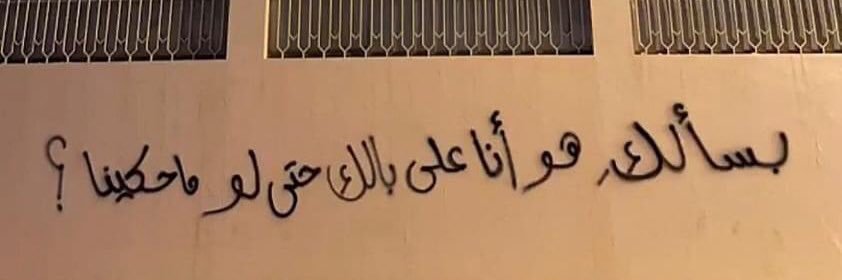 بسألك, هو أنا على بالك حتى لو ماحكينا ؟